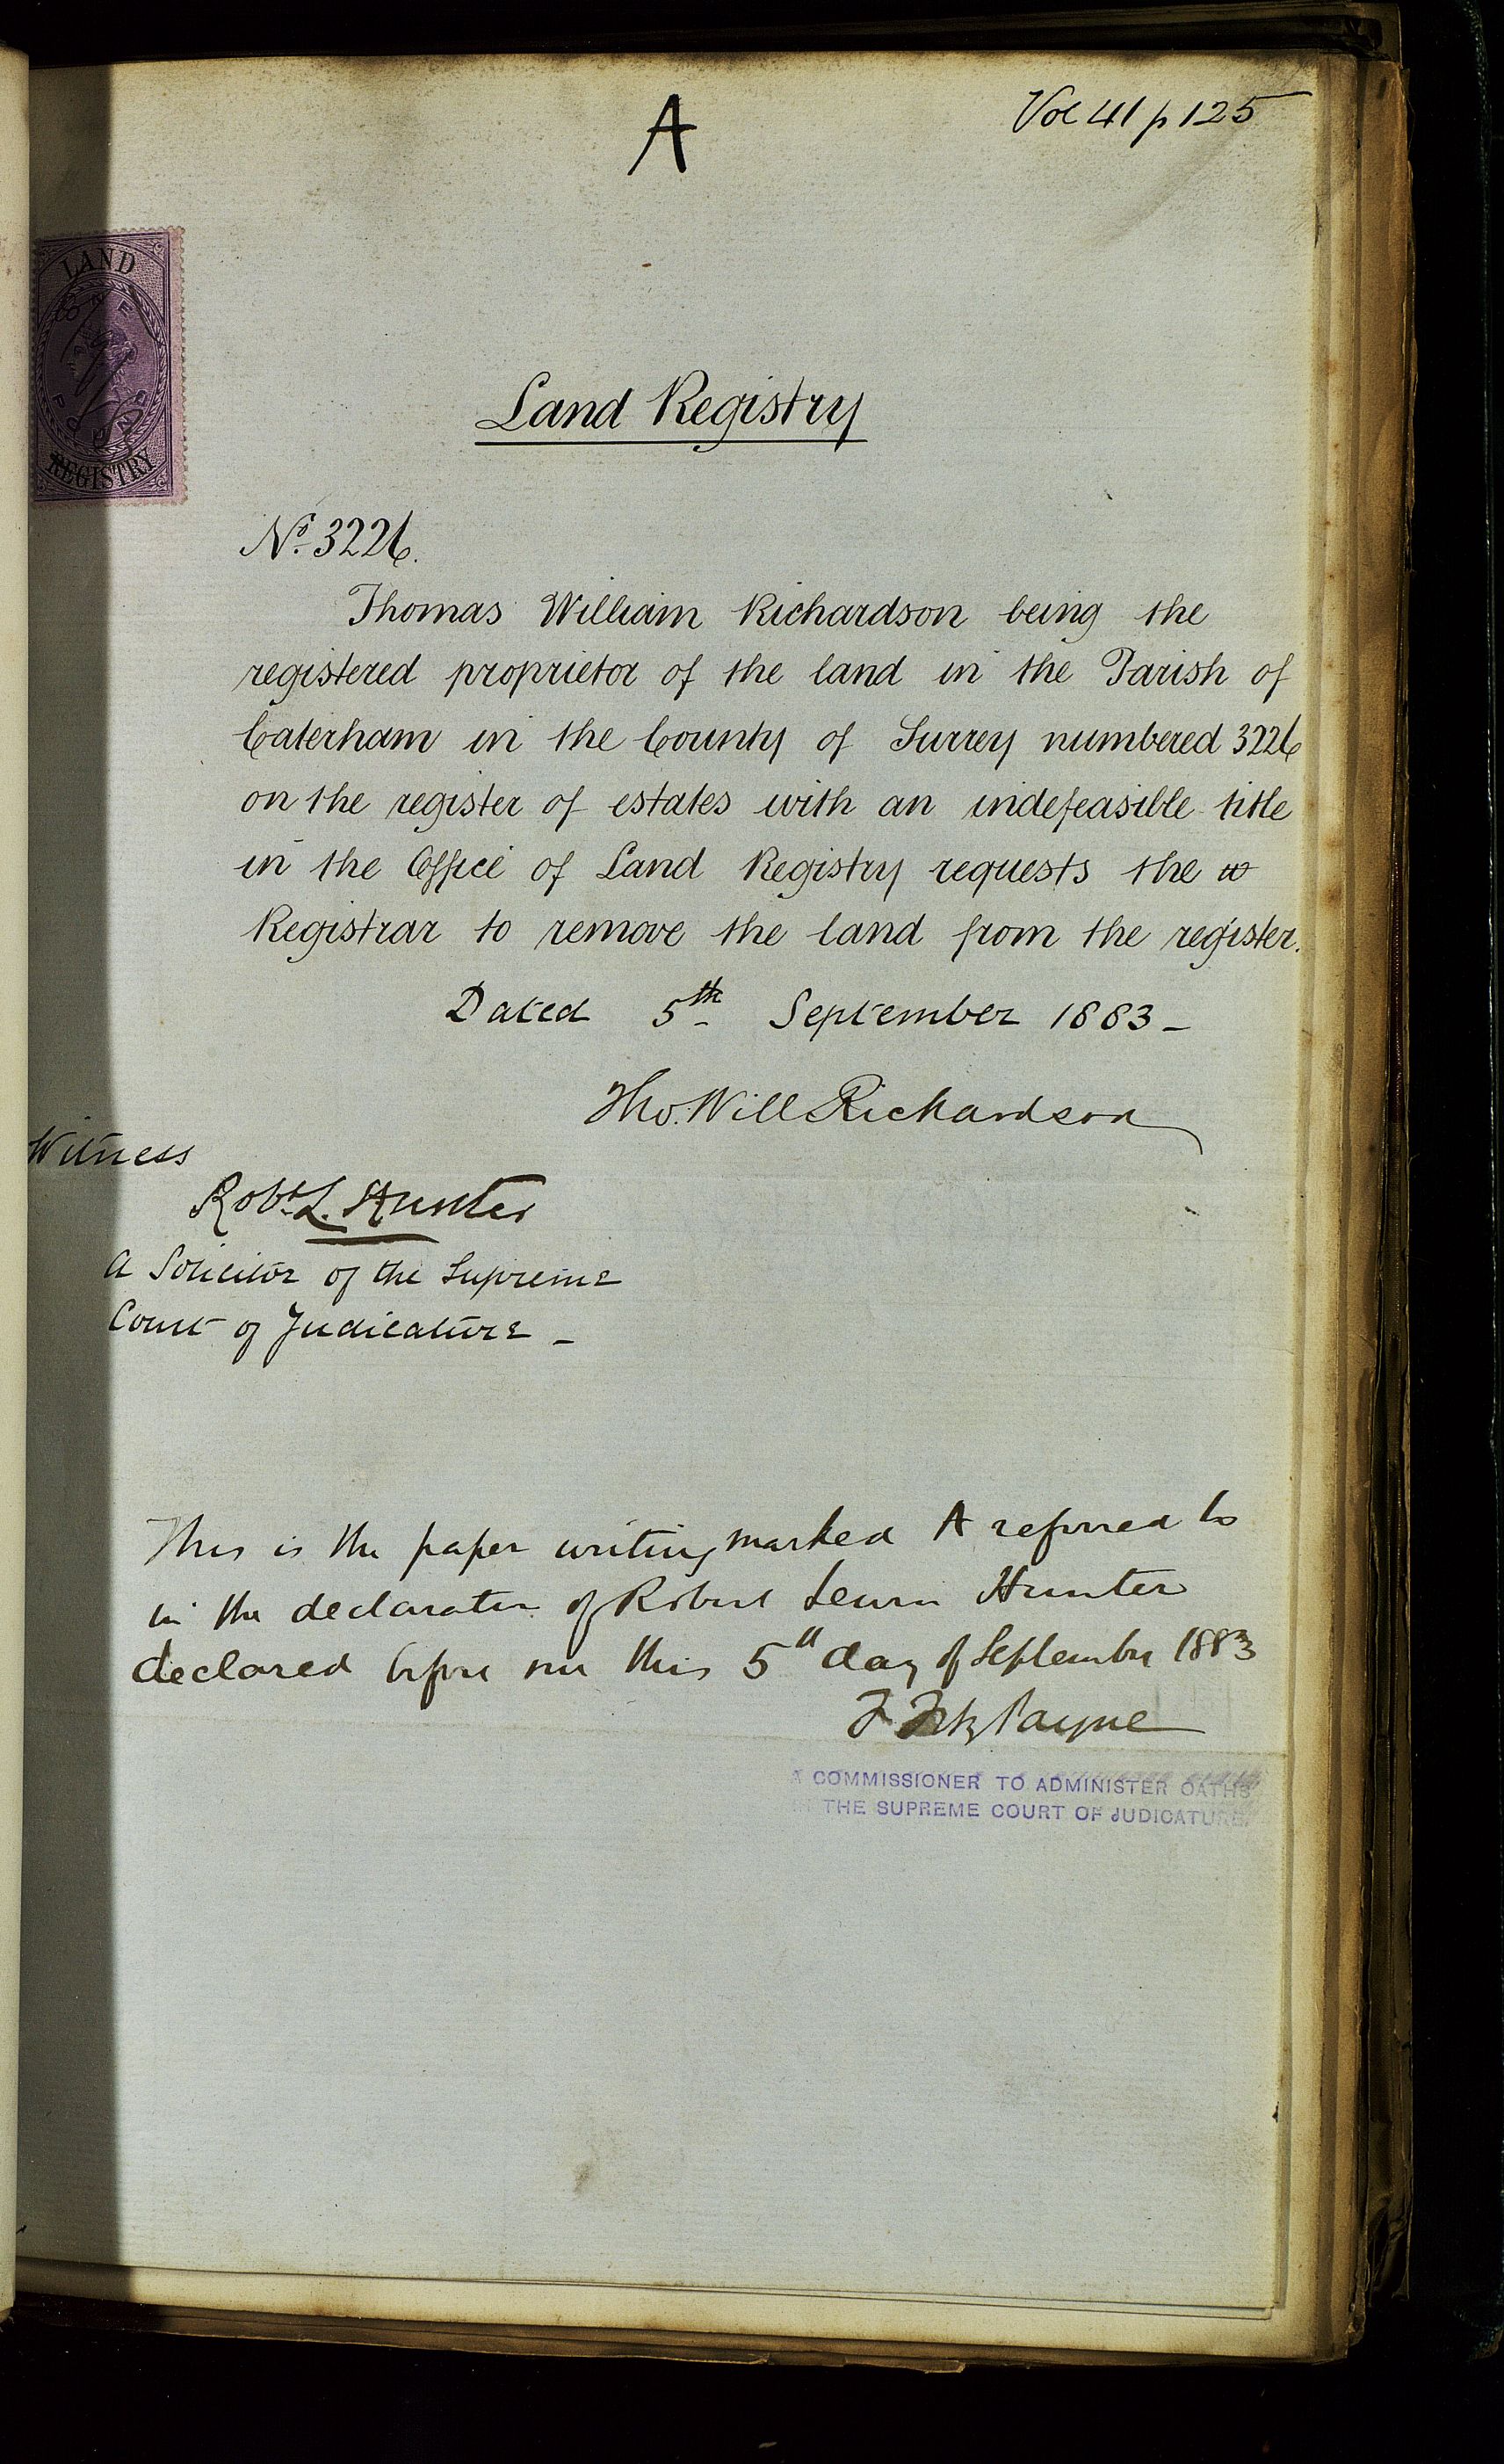 A
Vol 41 p 125
LAND
ONE
POUND
REGISTRY
Land Registry
No. 3226.
Thomas William Richardson being the
registered proprietor of the land in the Parish of
Caterham in the County of Surrey numbered 3226
on the register of estates with an indefeasible title
in the Office of Land Registry requests the
Registrar to remove the land from the register.
Dated 5th September 1883 -
Tho. Will Richardson
Witness
Robt. L. Hunter
a Solicitor of the Supreme
Court of Judicature -
This is the paper writing marked A referred to
in the declaration of Robert Lewin Hunter
declared before me this 5th day of September 1883
F Payne
A COMMISSIONER TO ADMINISTER OATHS
IN THE SUPREME COURT OF JUDICATURE.